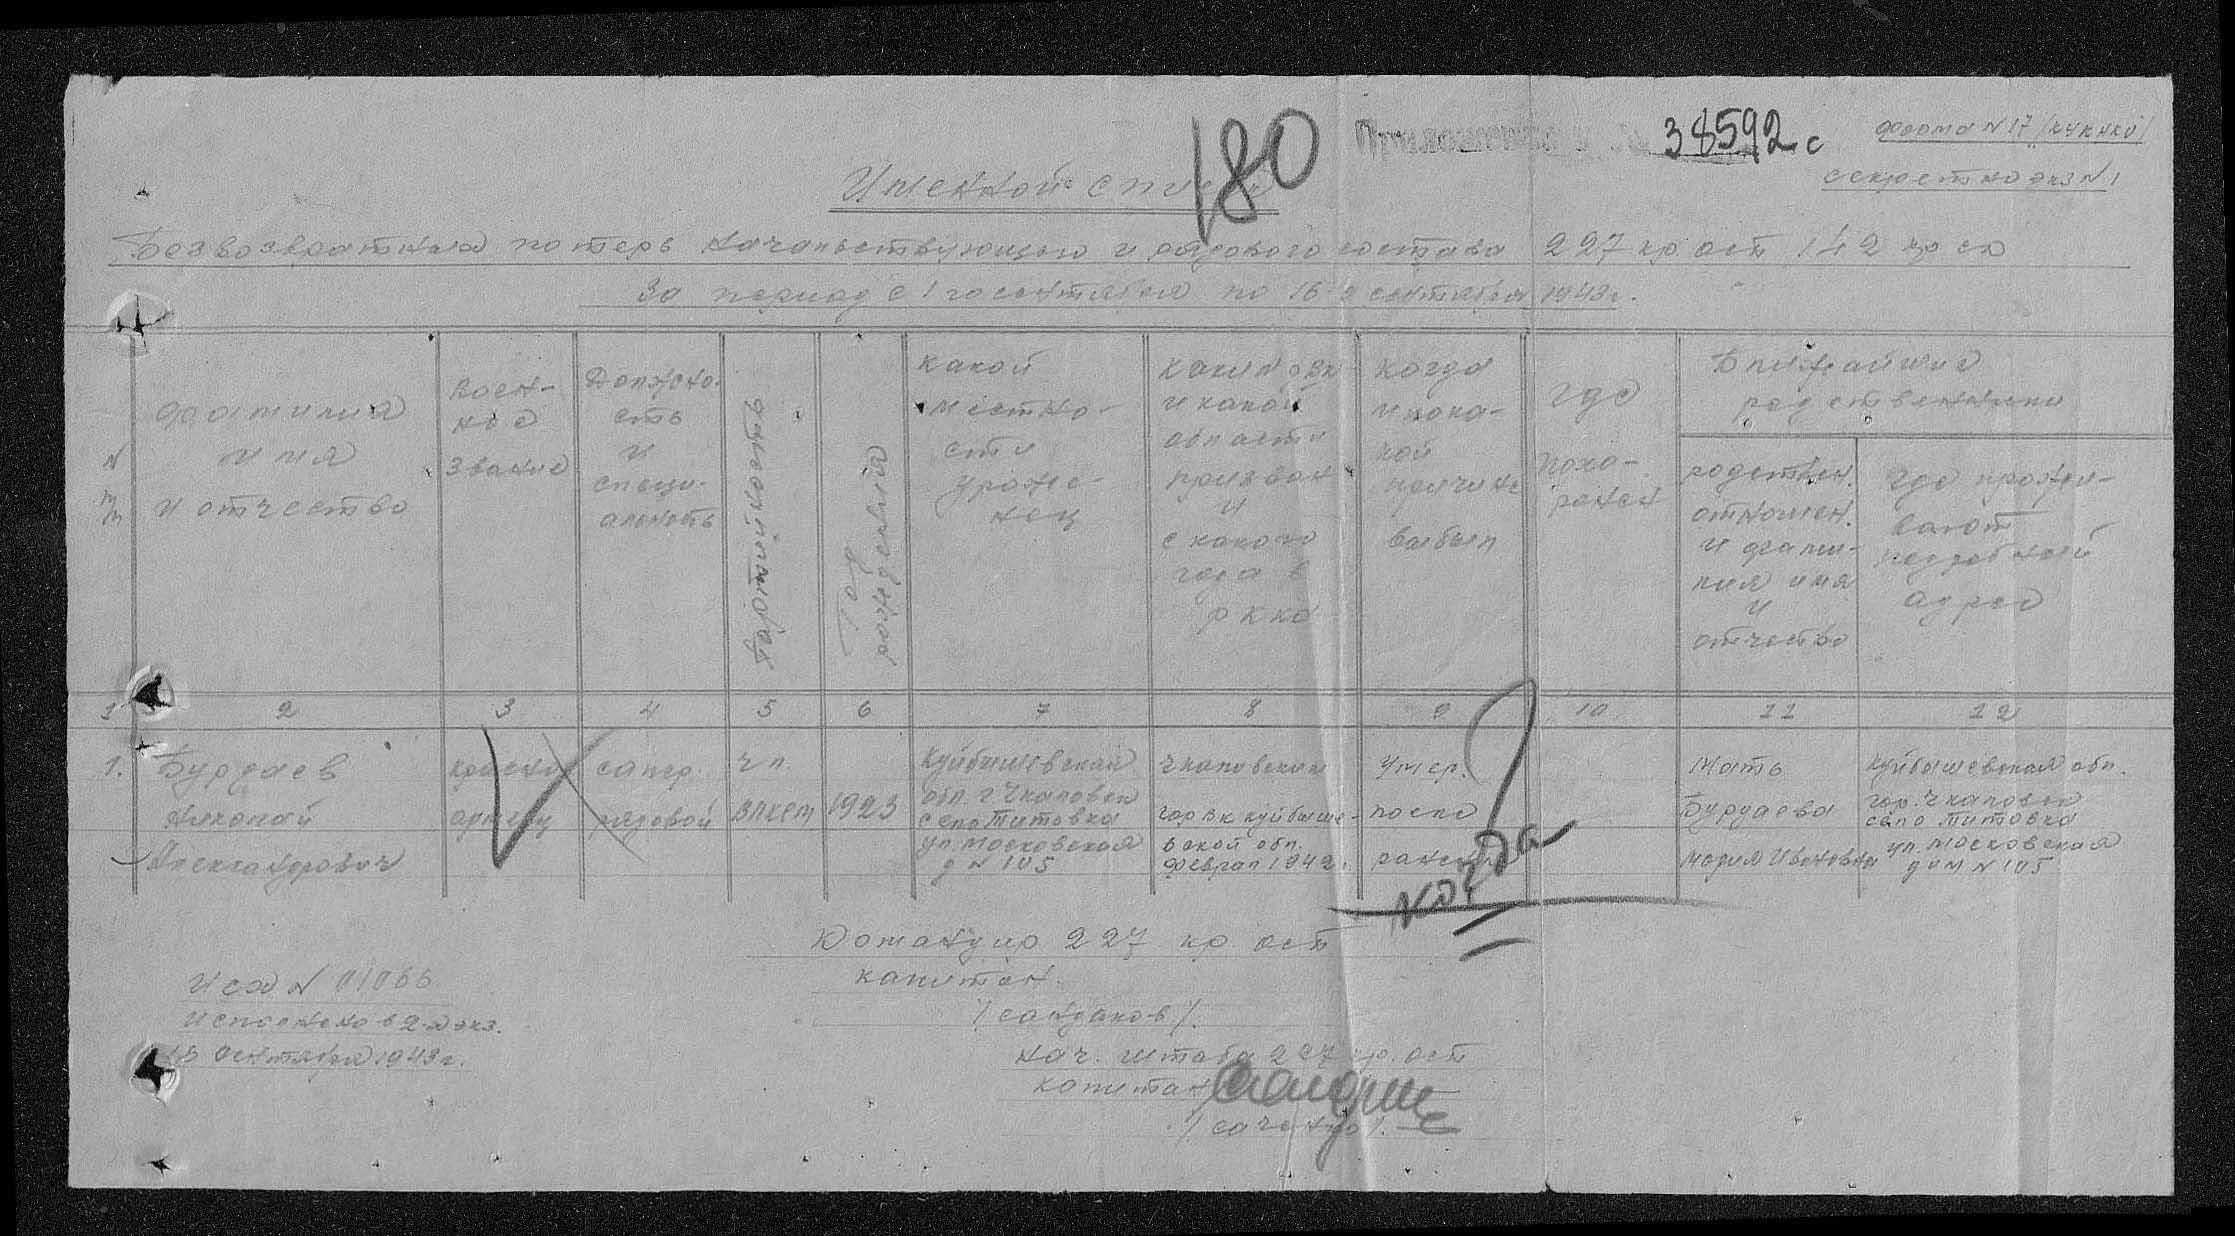 180
38592 с
форма N 17
секретно экз N 1
Именной
Безвозвратных потерь начальствующего и рядового состава 227 кр. осп 142 кр сд
за период с 1го сентября по 15 сентября 1943 г.
N
п/п
фамилия
имя
и отчество
воен-
ное
звание
Должно-
сть
и
специ-
альность
Партийность
Год
рождения
какой
местно-
сти
уроже-
нец
каким
и какой
области
призван
и
с какого
года в
ркка
когда
и по ка-
кой
причине
выбыл
где
похо-
ронен
Ближайшие
родственники
родствен.
отношен.
и фами-
лия имя
и
отчество
где прожи-
вают
подробный
адрес
1 2 3 4 5 6 7 8 9 10 11 12
1.
Бурдаев
Николай
Александрович
красно
армеец
сапер.
рядовой
чл.
влксм
1923
Куйбышевская
обл. г Чкаловск
село Титовка
ул. Московская
д N 105
Чкаловским
гор вк куйбыше-
вской обл.
феврал 1942 г.
умер.
после
ранения
когда
мать
Бурдаева
Мария Ивановна
Куйбышевская обл.
гор. Чкаловск
село Титовка
ул. Московская
дом N 105
Командир 227 кр. осп
капитан
/сандаков/.
Исх N 01066
исполнено в 2-х экз.
сентября 1943 г.
нач. штаба 227 кр. осп
капитан